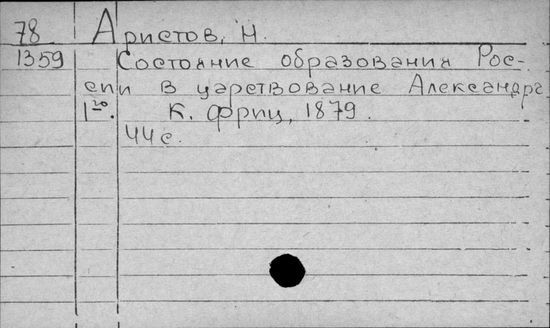 78 Аристов, Н.
1359 Состояние образования Рос-
сии в царствование Александра
I-го. К. Фриц, 1879.
44 с.